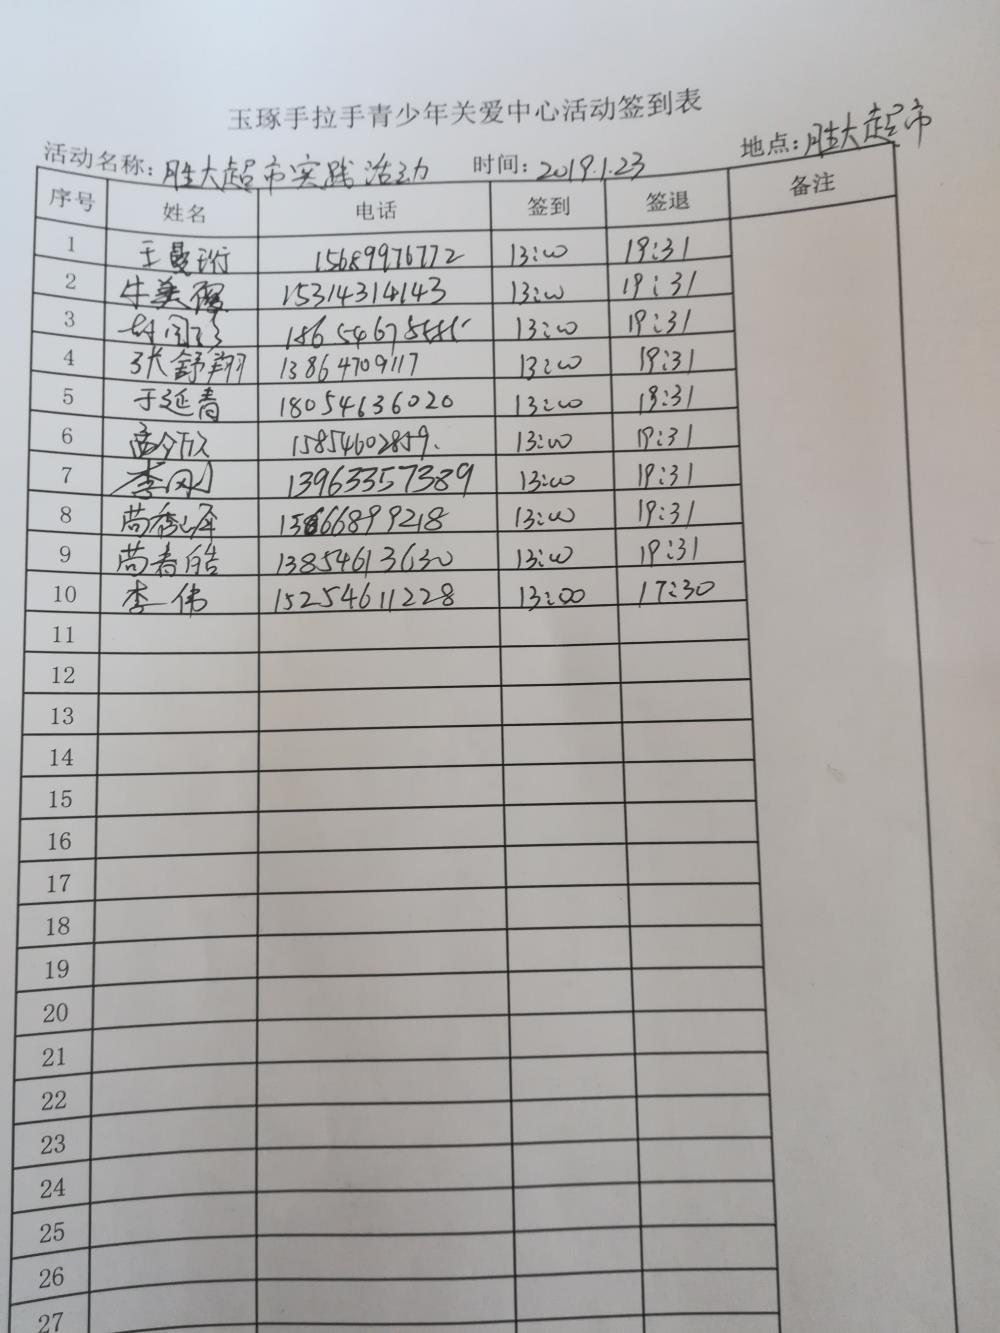 玉琢手拉手青少年关爱中心活动签到表
活动名称:胜大超市实践活动 时间:2019.1.23 地点:胜大超市
序号 姓名 电话 签到 签退 备注
1 王曼珩 15689976772 13:00 19:31
2 牛美 15314314143 13:00 19:31
3 13:00 19:31
4 张舒翔 13864709117 13:00 19:31
5 于延青 18054636020 13:00 19:31
6 15854602859. 13:00 19:31
7 李刚 13963357389 13:00 19:31
8 13866899218 13:00 19:31
9 苘春皓 13854613630 13:00 19:31
10 李伟 15254611228 13:00 17:30
11
12
13
14
15
16
17
18
19
20
21
22
23
24
25
26
27